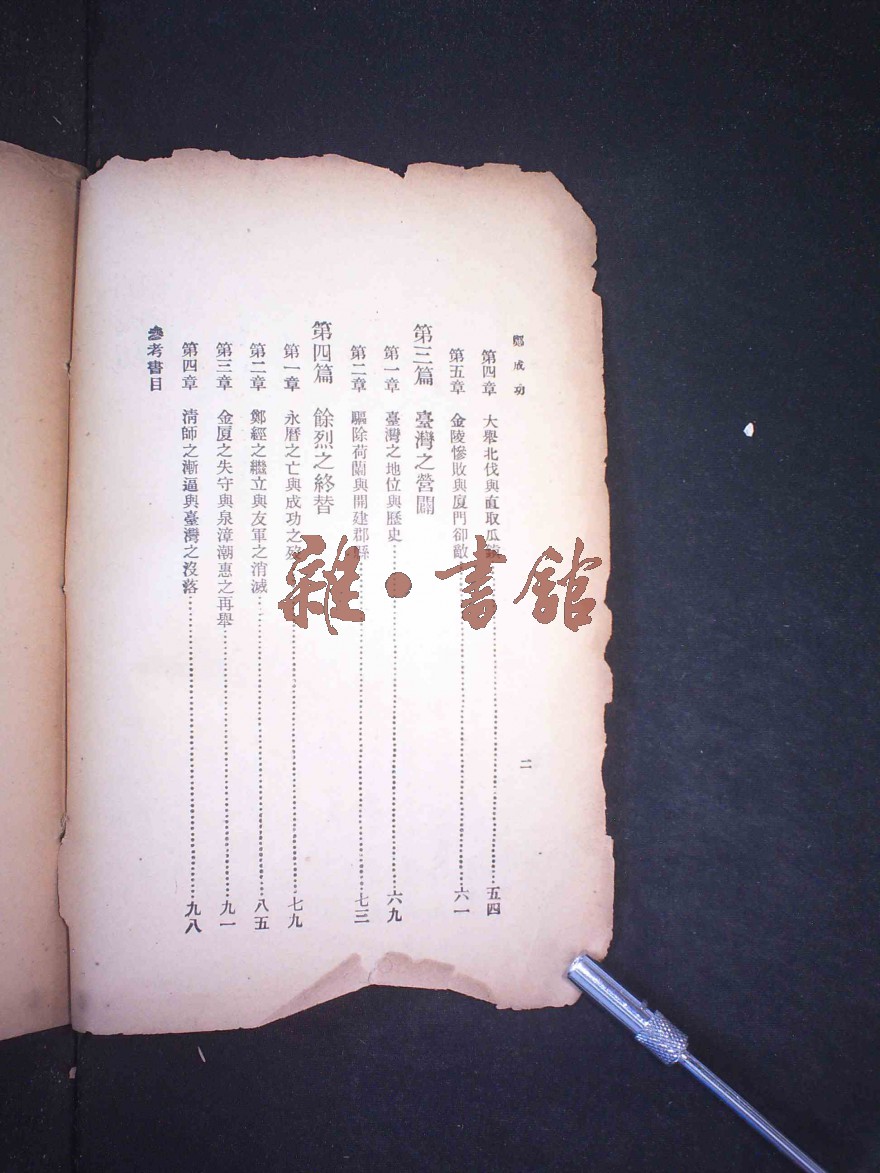 鄭成功
二
第四章 大舉北伐與直取瓜鎮 五四
第五章 金陵慘敗與廈門卻敵 六一
第三篇 臺灣之營闢
第一章 臺灣之地位與歷史 六九
第二章 驅除荷蘭與開建郡縣 七三
第四篇 餘烈之終替
第一章 永曆之亡與成功之歿 七九
第二章 鄭經之繼立與友軍之消滅 八五
第三章 金厦之失守與泉漳潮惠之再舉 九一
第四章 淸師之漸逼與臺灣之沒落 九八
參考書目
雜·書館